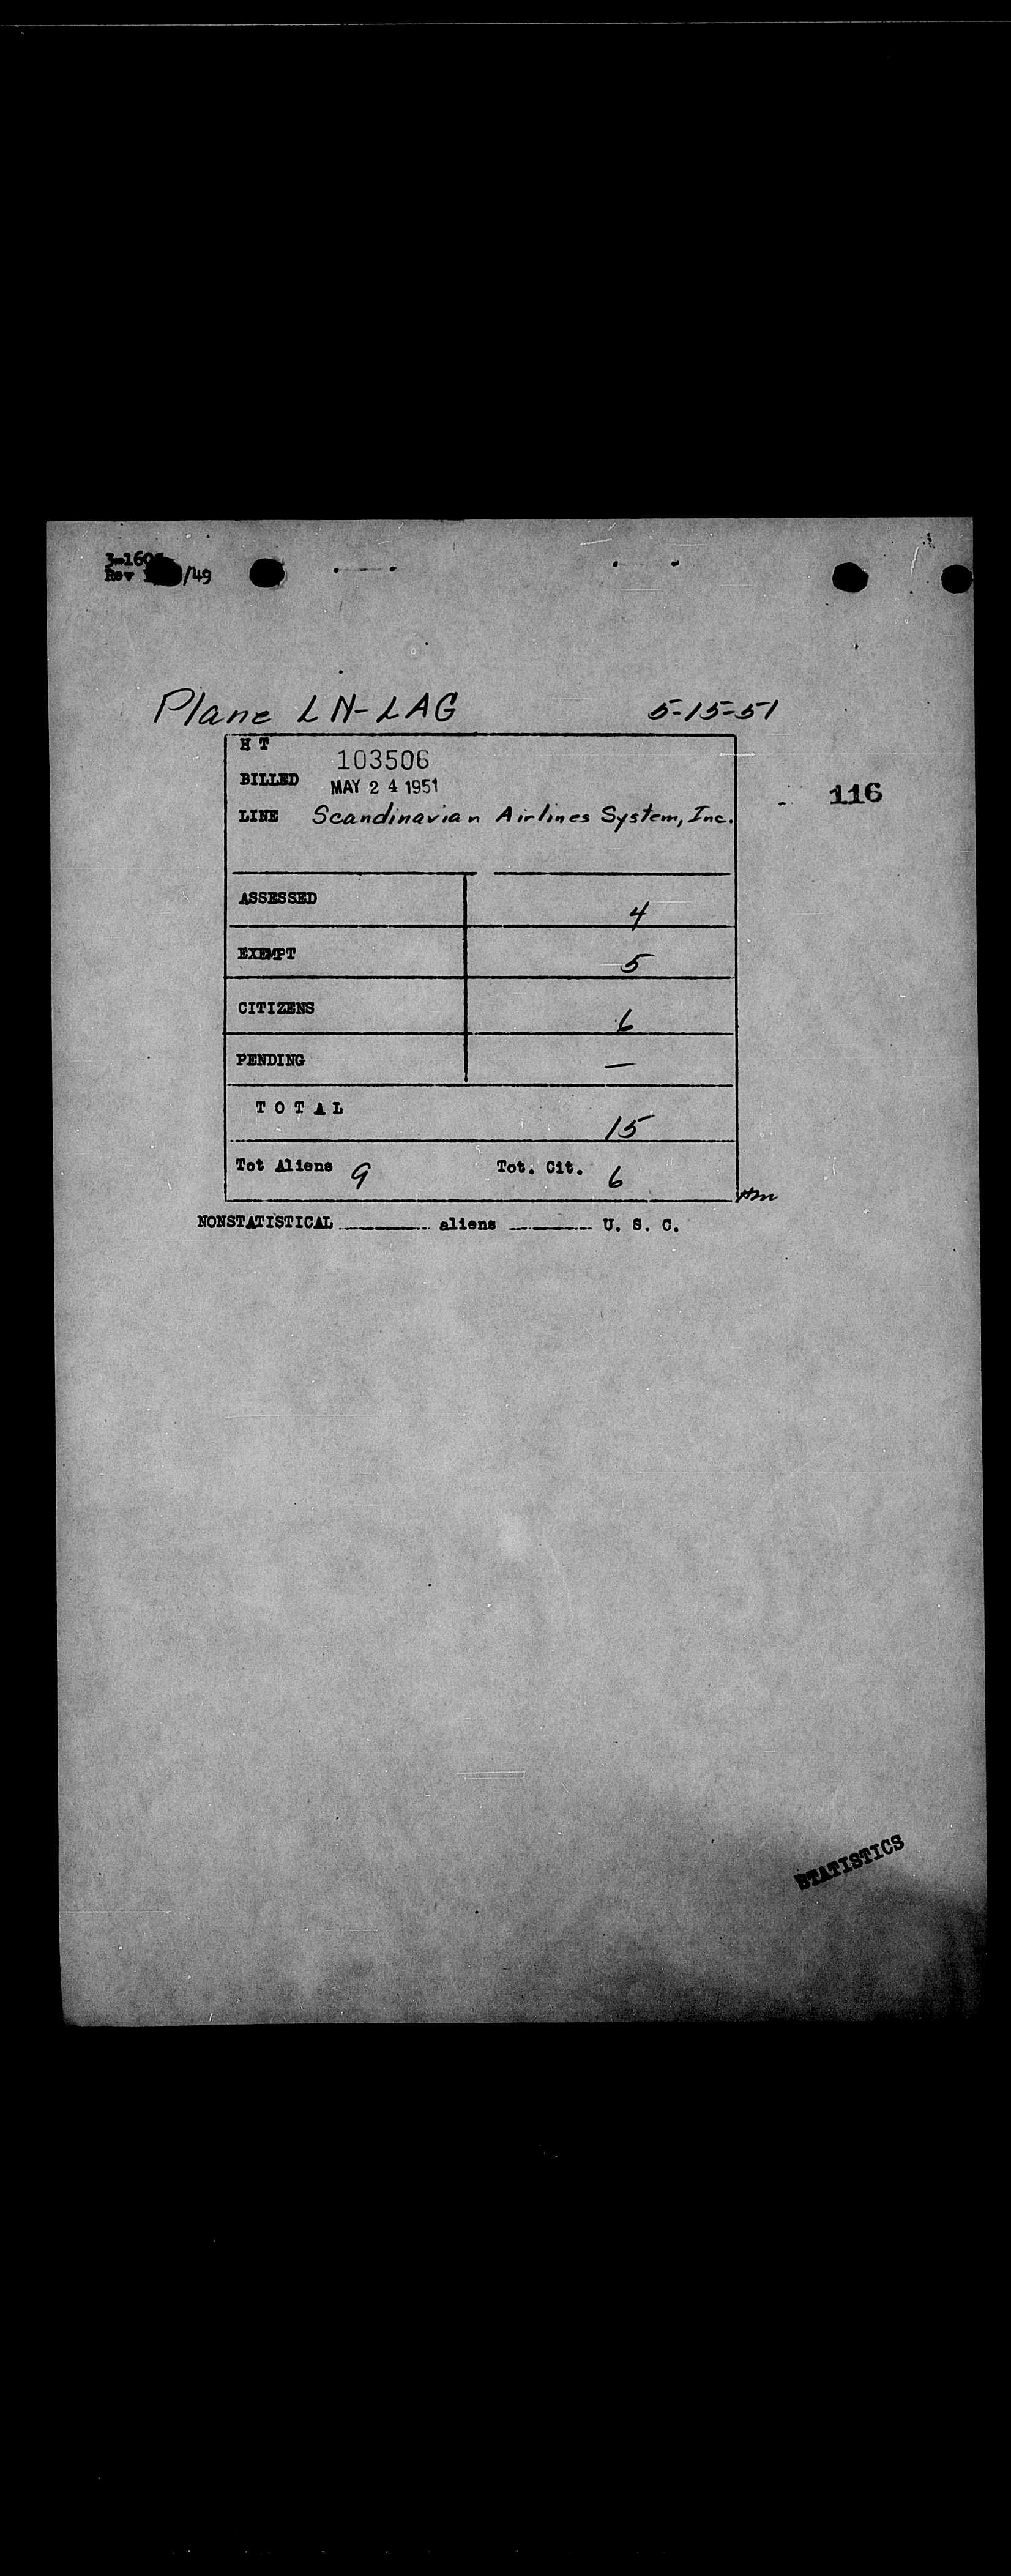 /49
Plane LN-LAG 5-15-51
H T 103506
BILLED MAY 24 1951
116
LINE Scandinavian Airlines System, Inc.
ASSESSED 4
EXEMPT 5
CITIZENS 6
PENDING —
TOTAL 15
Tot Aliens 9 Tot. Cit. 6
NONSTATISTICAL ________ aliens ________ U. S. C.
STATISTICS